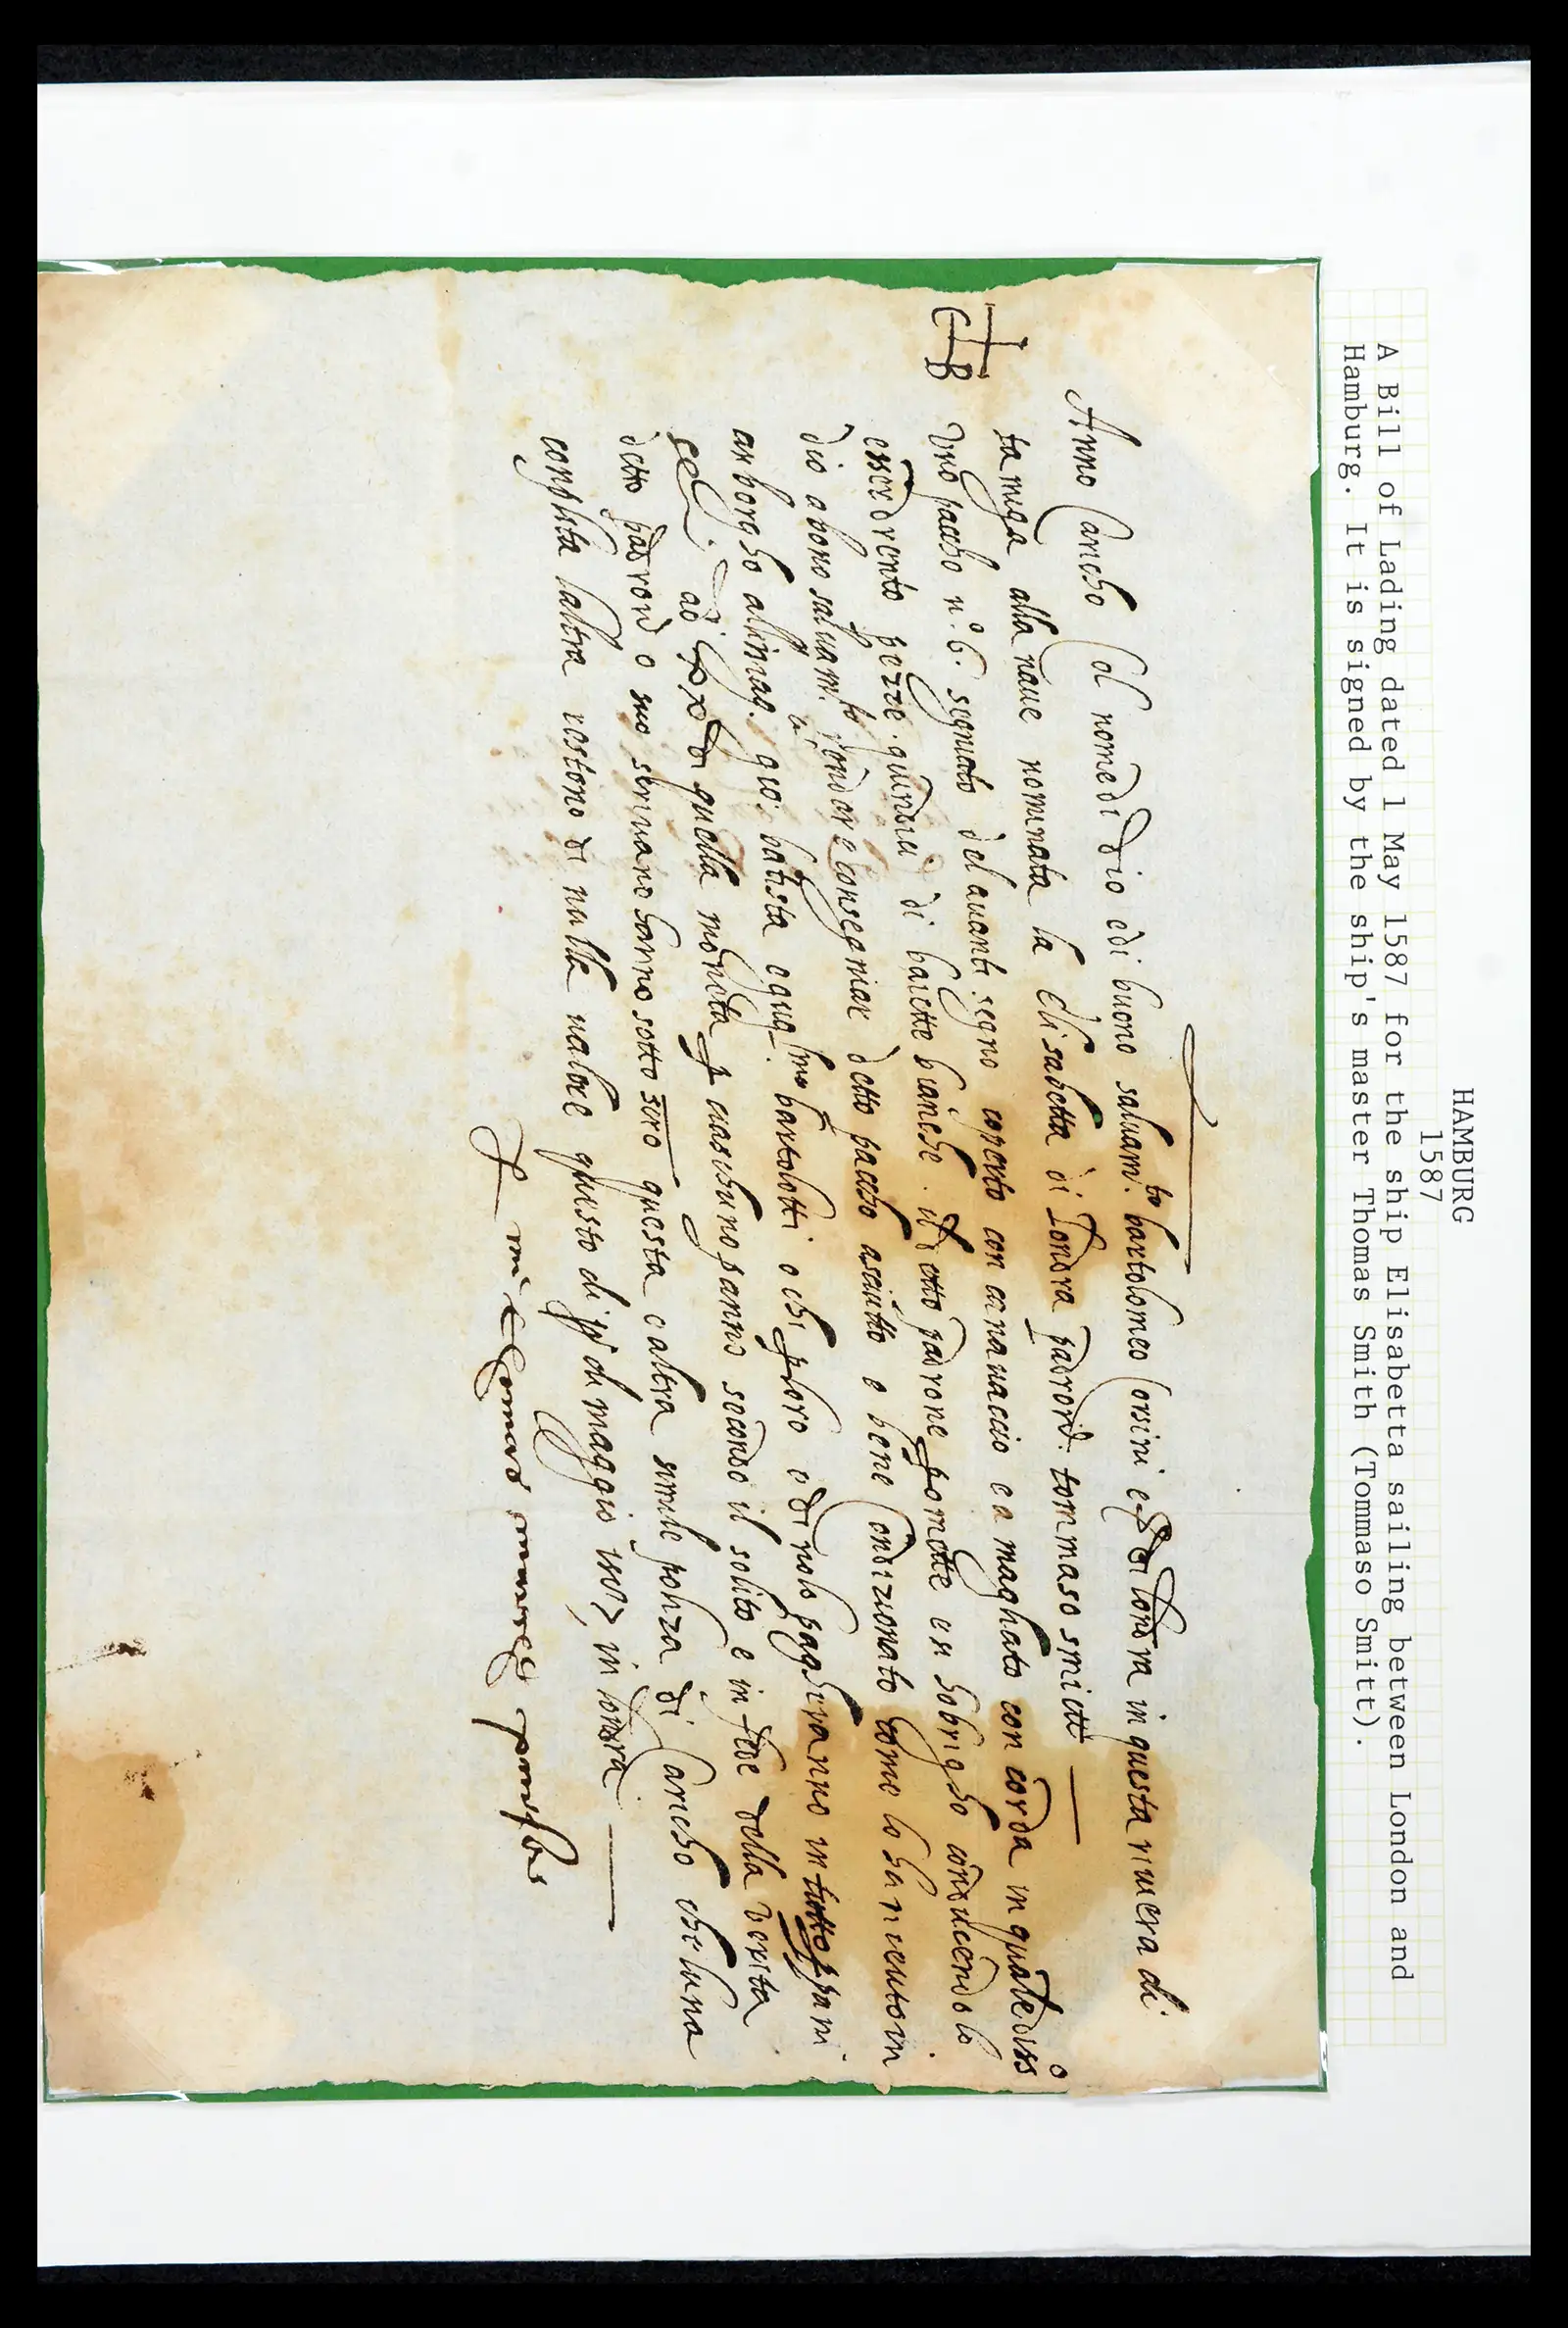 HAMBURG
1587
A Bill of Lading dated 1 May 1587 for the ship Elisabetta sailing between London and
Hamburg. It is signed by the ship's master Thomas Smith (Tommaso Smitt).
Anno Caricho Col nome di Dio e di buono saluam.to bartolomeo Corsini e di Londra in questa riuiera di
tamiga alla naue nominata la Elisabetta di Londra padron tommaso smitt
C B
Uno paccho n.o 6. segniato del auanti segno coperto con canauaccio e a maghato con corda in quale diss.o
essere drento pezze quindici di baiette bianche. il detto padrone promette en hobrigho conducendolo
dio a bono saluam.to Condare Consegniar detto paccho asciutto e bene Condizionato Come lo ha riceuto in
amborgho alli gio: batista e gug.mo bartolotti o chi p loro e di nolo pagheranno in p pani
di quella moneta p ciaschuno panno secondo il solito e in fede della verita
detto padrone o suo scriuano hanno sotto questa e altra simile poliza di Caricho che luna
conplita laltra restono di nulla ualore questo di p.o di maggio 1587 in londra